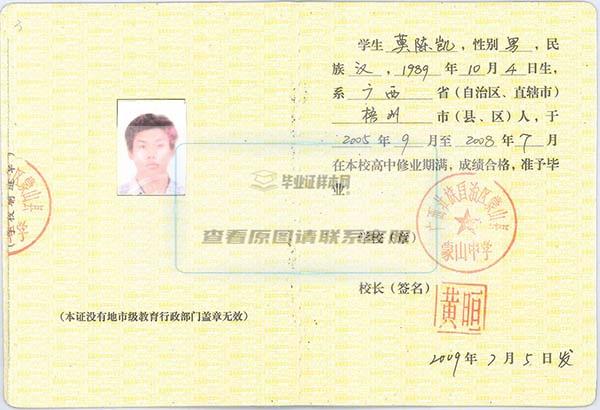 学生 莫陈凯，性别 男，民
族 汉，1989 年 10 月 4 日生，
系 广西 省（自治区、直辖市）
梧州 市（县、区）人，于
2005 年 9 月至 2008 年 7 月
在本校高中修业期满，成绩合格，准予毕
业
学校（章）
广西壮族自治区蒙山县
蒙山中学
校长（签名）
黄晅
2009 年 7 月 5 日发
毕业证样本网
查看原图请联系客服
（本证没有地市级教育行政部门盖章无效）
蒙山县